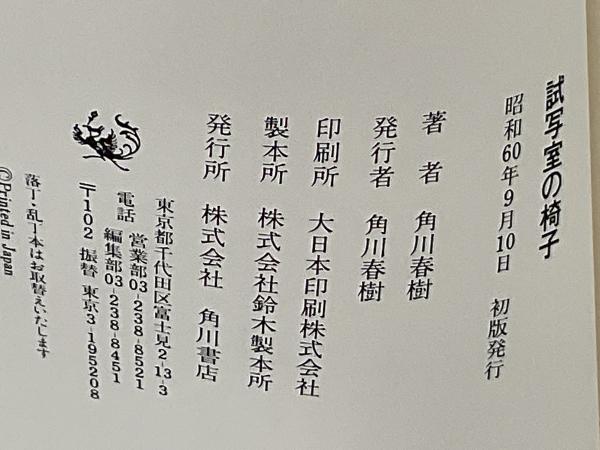 試写室の椅子
昭和60年9月10日 初版発行
著者 角川春樹
発行者 角川春樹
印刷所 大日本印刷株式会社
製本所 株式会社鈴木製本所
発行所 株式会社 角川書店
東京都千代田区富士見2-13-3
電話 営業部03-238-8521
編集部03-238-8451
〒102 振替 東京3-195208
落丁・乱丁本はお取替えいたします
©Printed in Japan